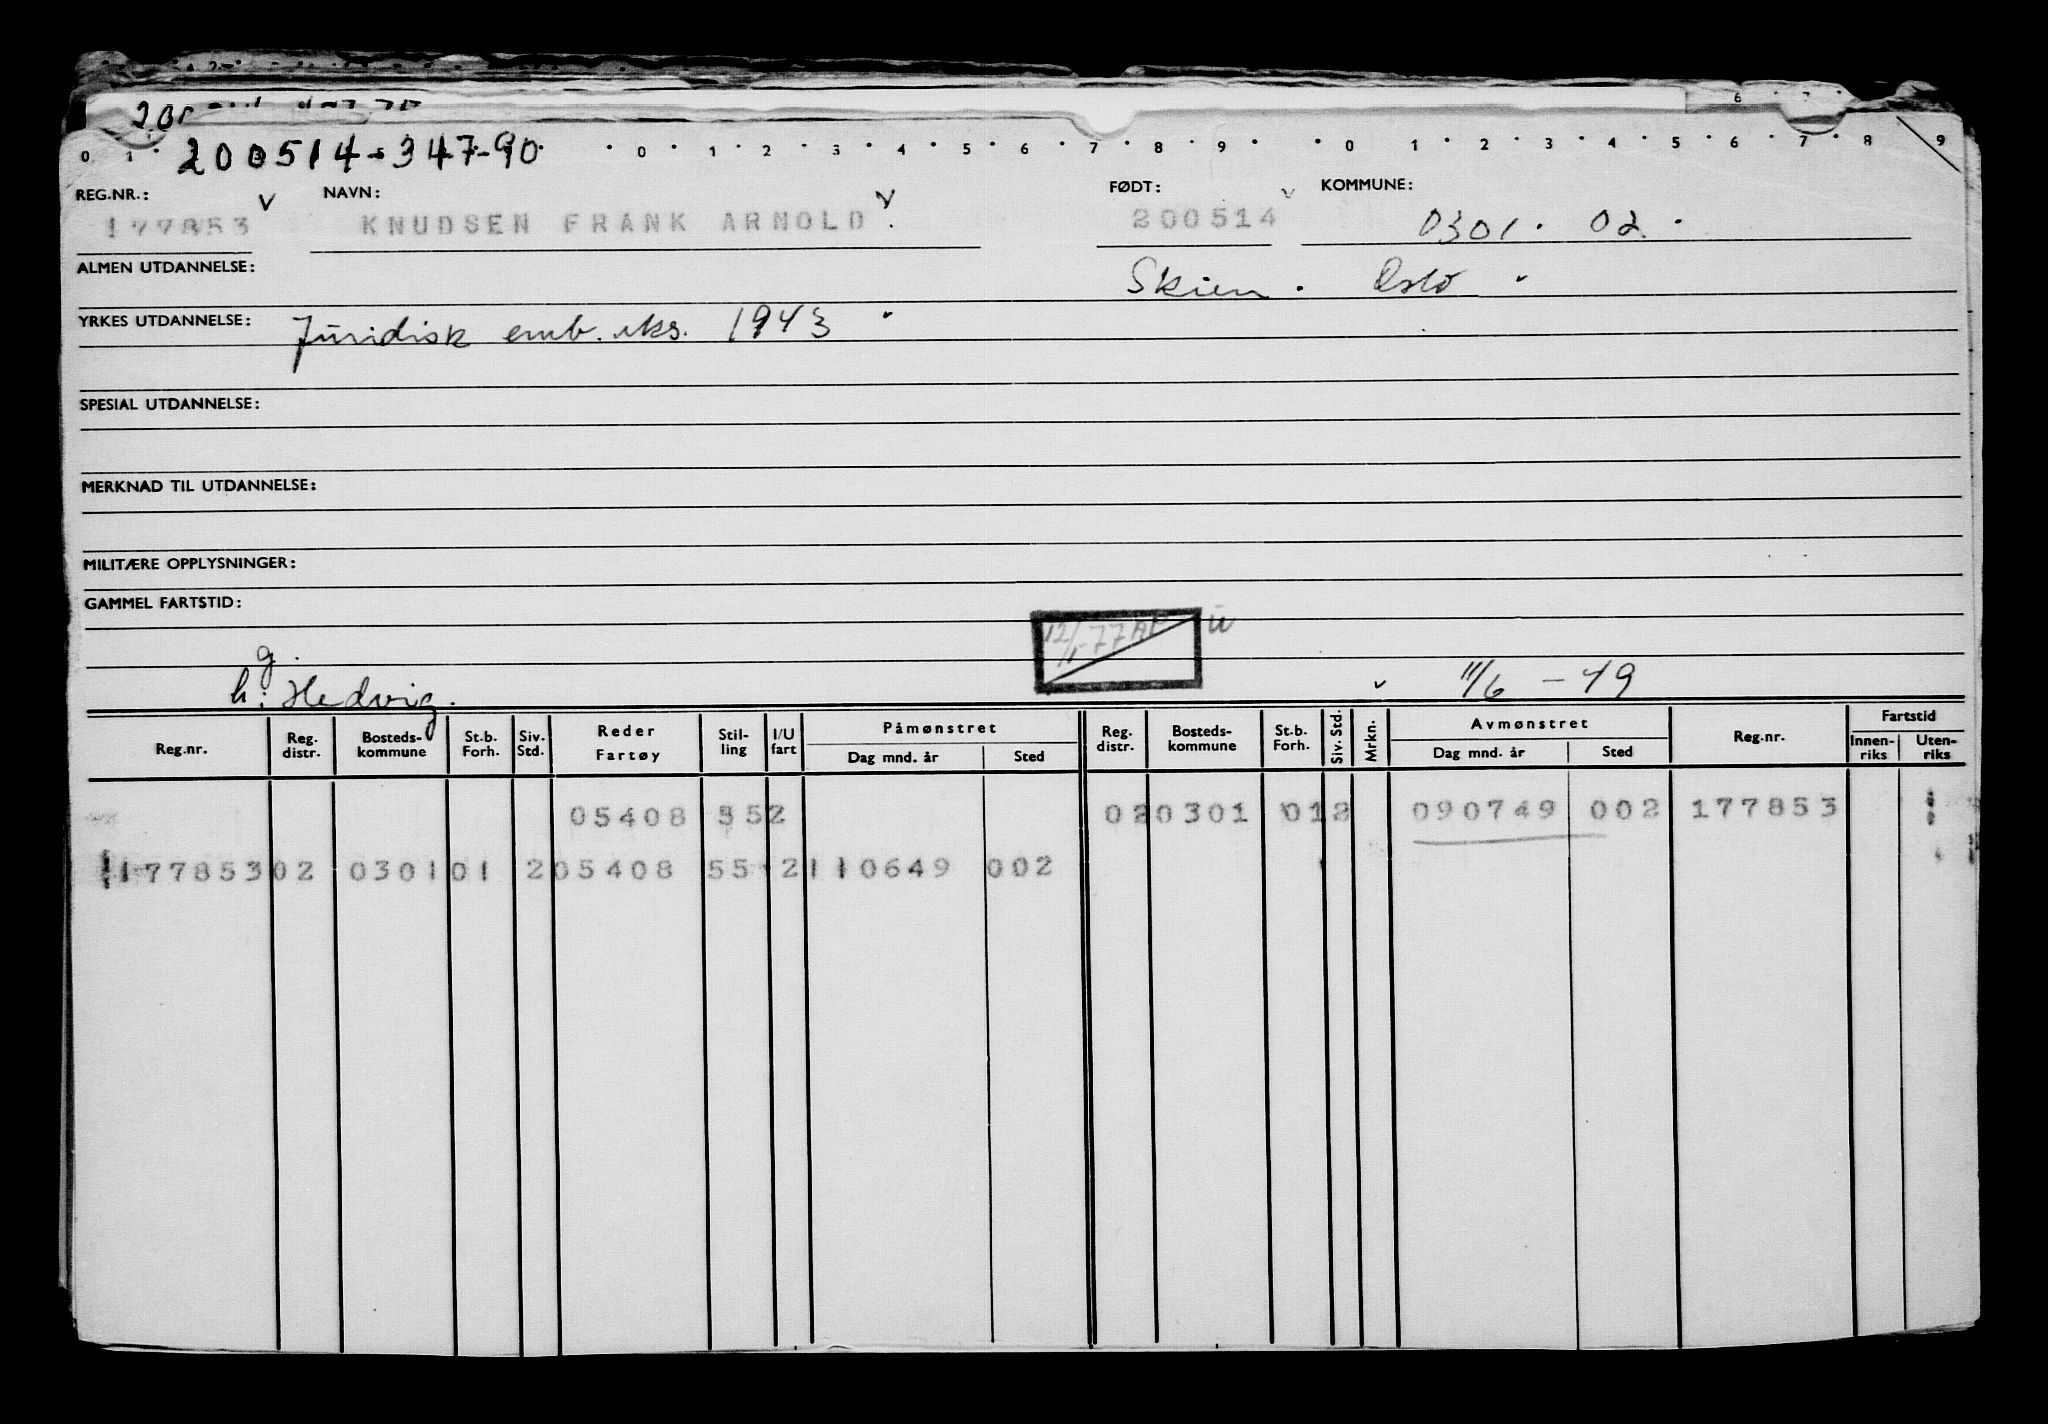 200514-347-90
0 1 0 1 2 3 4 5 6 7 8 9 0 1 2 3 4 5 6 7 8 9
REG.NR.: NAVN: FØDT: KOMMUNE:
177853 KNUDSEN FRANK ARNOLD 200514 0301. 02.
ALMEN UTDANNELSE: Skien. Oslo
YRKES UTDANNELSE: Juridisk emb. eks. 1943
SPESIAL UTDANNELSE:
MERKNAD TIL UTDANNELSE:
MILITÆRE OPPLYSNINGER:
GAMMEL FARTSTID:
12/1-77 AP u
g.
h: Hedvig. 11/6 - 49
Reg.nr. Reg. distr. Bosteds-kommune St.b. Forh. Siv. Std. Reder Fartøy Stil-ling I/U fart Påmønstret Dag mnd. år Sted Reg. distr. Bosteds-kommune St.b. Forh. Siv. Std. Mrkn. Avmønstret Dag mnd. år Sted Reg.nr. Fartstid Innen-riks Uten-riks
05408 552 02 0301 01 2 090749 002 177853
177853 02 0301 01 2 05408 55 2 110649 002